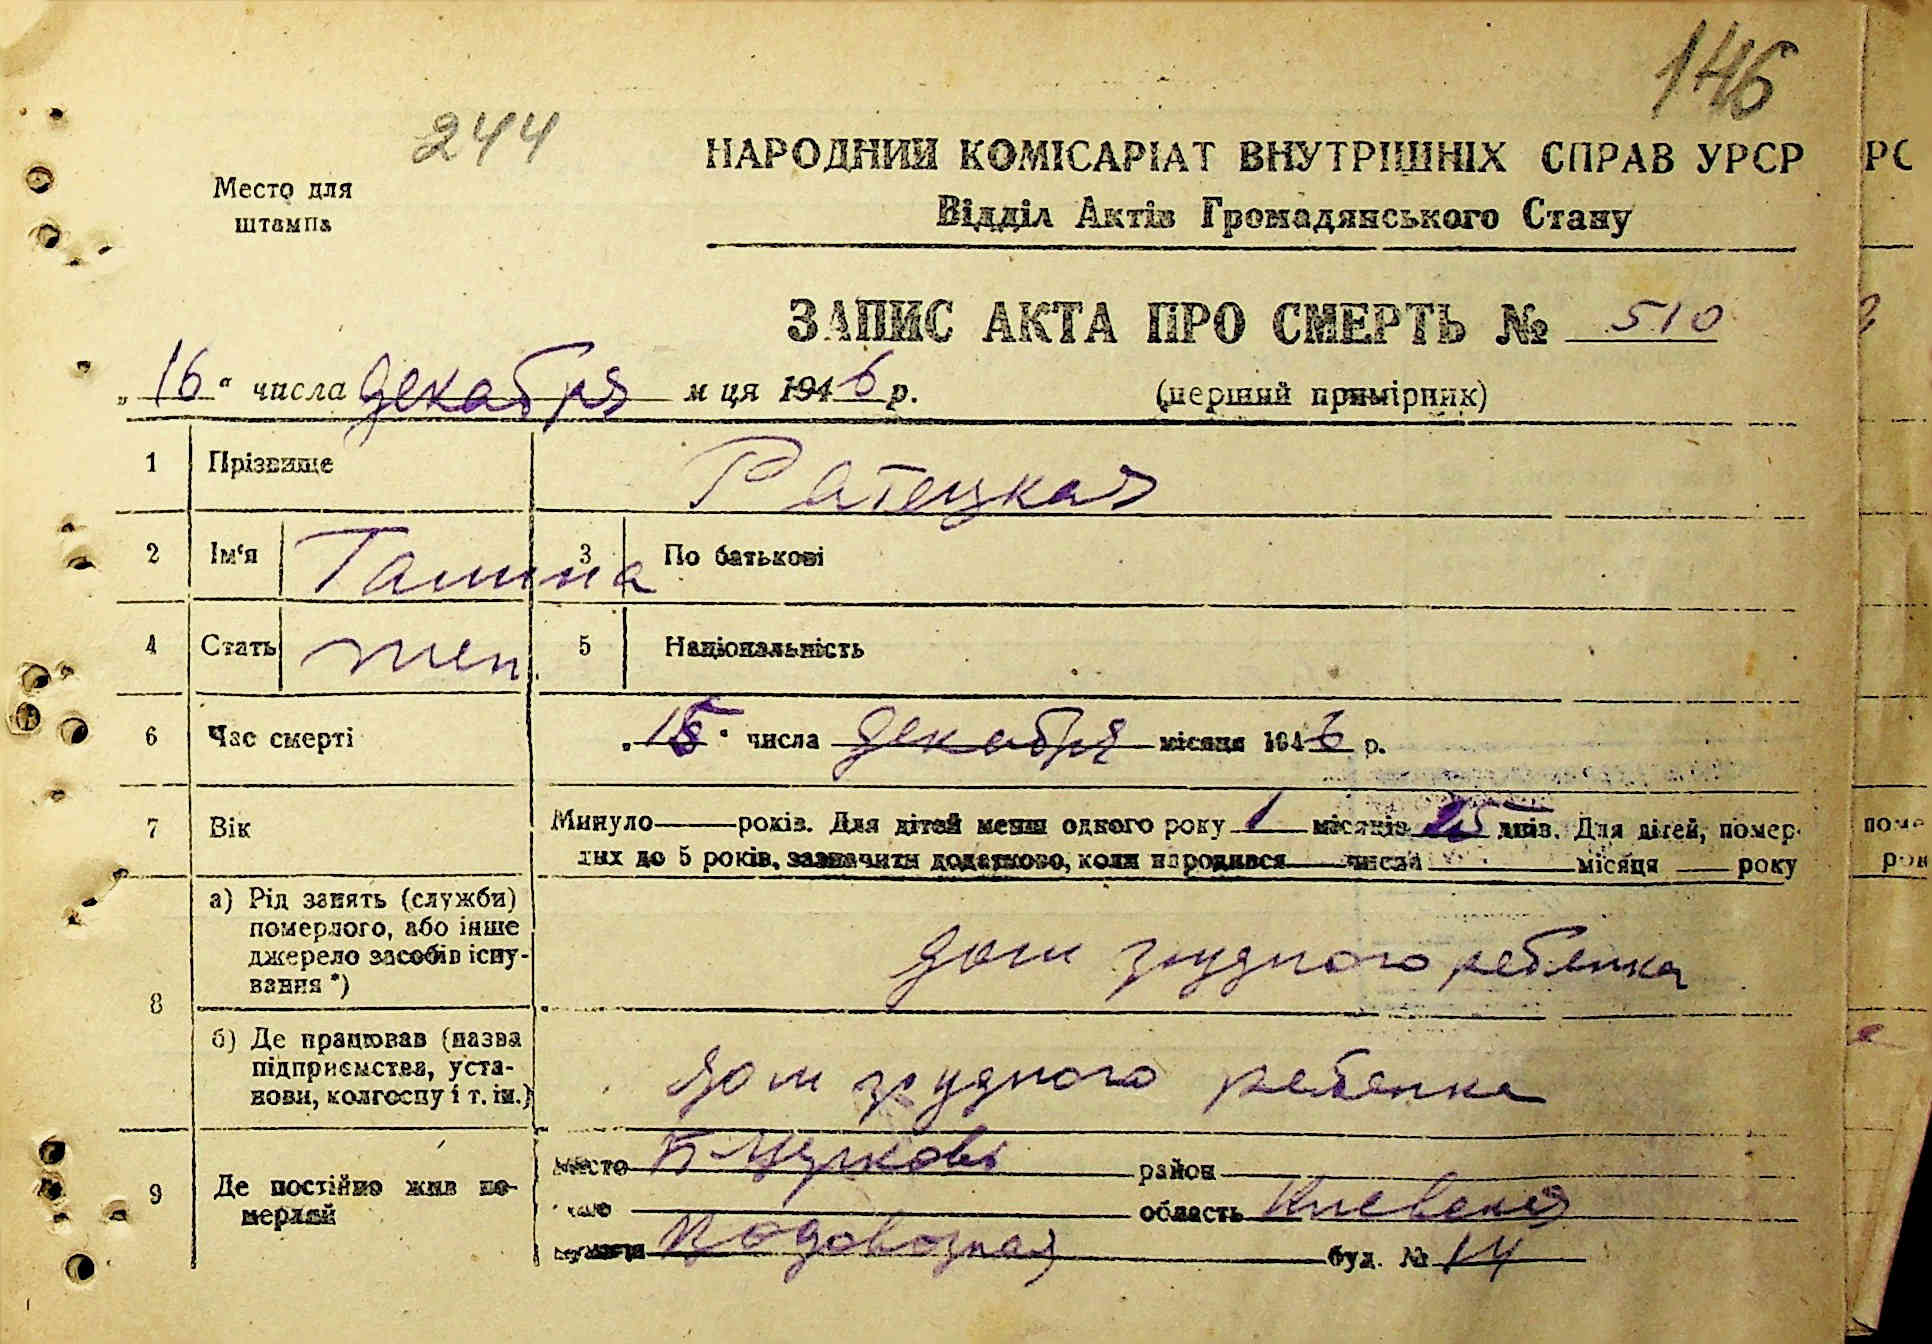 146
244
НАРОДНИЙ КОМІСАРІАТ ВНУТРІШНІХ СПРАВ УРСР
Место для
штампа
Відділ Актів Громадянського Стану
ЗАПИС АКТА ПРО СМЕРТЬ № 510
„16“ числа декабря м ця 1946 р. (перший примірник)
1 Прізвище Ратецкая
2 Ім'я Галина 3 По батькові
4 Стать жен. 5 Національність
6 Час смерті „15“ числа декабря місяця 1946 р.
7 Вік Минуло — років. Для дітей менш одного року 1 місяців 25 днів. Для дітей, помер-
лих до 5 років, зазначити додатково, коли народився числа місяця року
8 а) Рід занять (служби)
померлого, або інше
джерело засобів існу-
вання *)
дом грудного ребенка
б) Де працював (назва
підприємства, уста-
нови, колгоспу і т. ін.)
дом грудного ребенка
9 Де постійно жив по-
мерлий
місто Б Церковь район
область Киевская
Водовозная буд. № 14